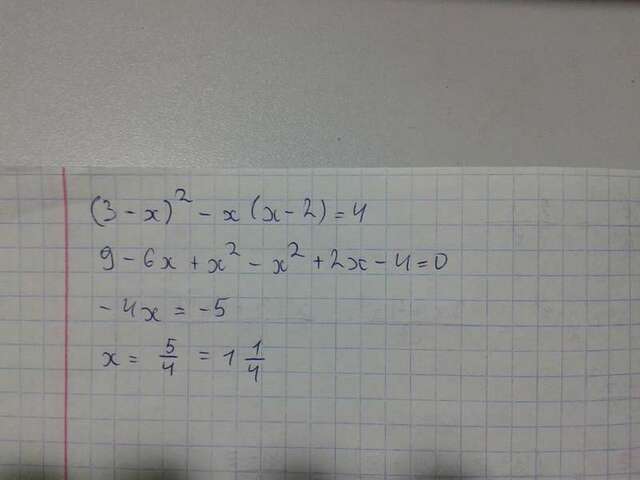 (3 - x)² - x (x - 2) = 4
9 - 6x + x² - x² + 2x - 4 = 0
- 4x = -5
x = 5/4 = 1 1/4